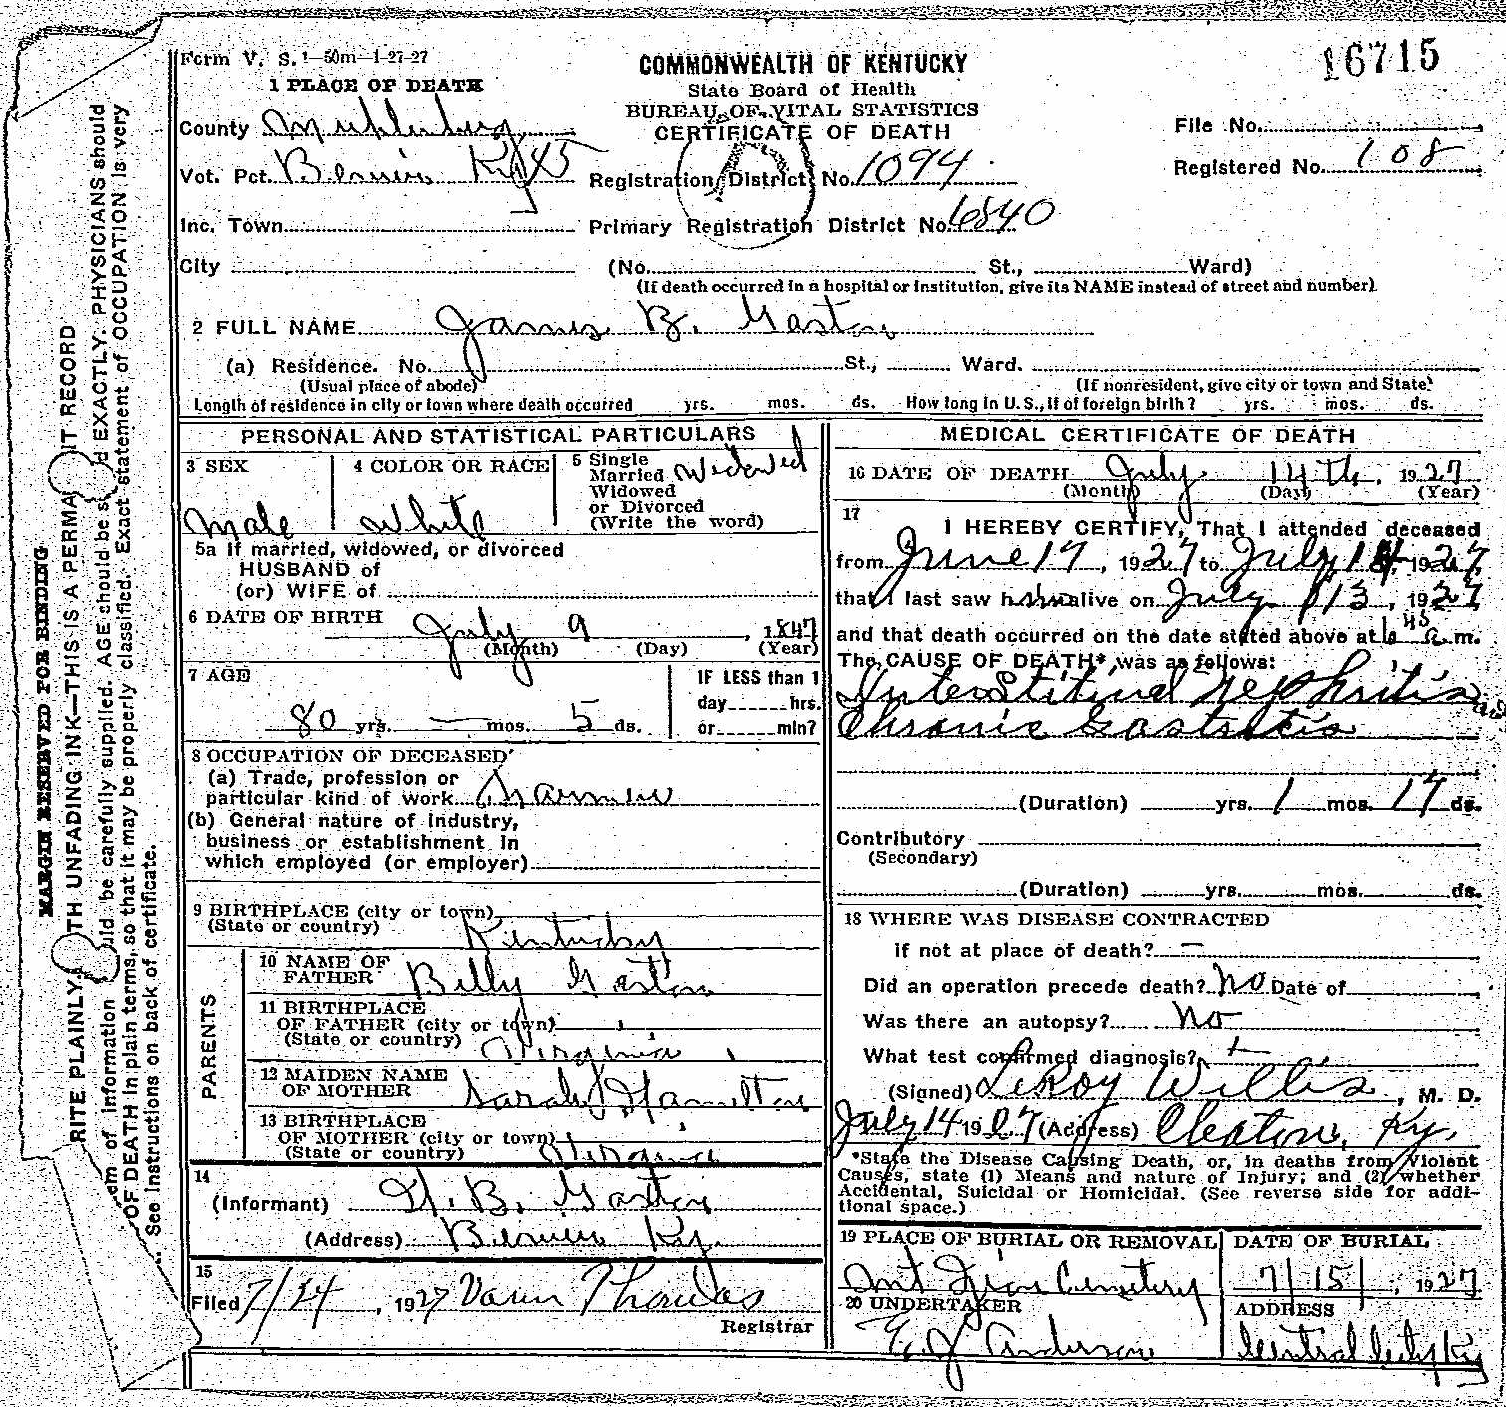 Form V. S. 1—50m—1-27-27
COMMONWEALTH OF KENTUCKY
State Board of Health
BUREAU OF VITAL STATISTICS
CERTIFICATE OF DEATH
16715
1 PLACE OF DEATH
County Muhlenberg
File No.
Vot. Pct. Bevier Ky 45
Registration District No. 1094
Registered No. 108
Inc. Town
Primary Registration District No. 6840
City (No. St., Ward)
(If death occurred in a hospital or institution, give its NAME instead of street and number)
2 FULL NAME James B. Gaston
(a) Residence. No. St., Ward.
(Usual place of abode) (If nonresident, give city or town and State)
Length of residence in city or town where death occurred yrs. mos. ds. How long in U. S., if of foreign birth? yrs. mos. ds.
PERSONAL AND STATISTICAL PARTICULARS
3 SEX
Male
4 COLOR OR RACE
White
5 Single
Married
Widowed
or Divorced
(Write the word)
Widowed
5a If married, widowed, or divorced
HUSBAND of
(or) WIFE of
6 DATE OF BIRTH
July 9, 1847
(Month) (Day) (Year)
7 AGE
80 yrs. — mos. 5 ds.
IF LESS than 1
day hrs.
or min?
8 OCCUPATION OF DECEASED
(a) Trade, profession or
particular kind of work Farmer
(b) General nature of industry,
business or establishment in
which employed (or employer)
9 BIRTHPLACE (city or town)
(State or country) Kentucky
PARENTS
10 NAME OF
FATHER Billy Gaston
11 BIRTHPLACE
OF FATHER (city or town)
(State or country) Virginia
12 MAIDEN NAME
OF MOTHER Sarah Hamilton
13 BIRTHPLACE
OF MOTHER (city or town)
(State or country) Virginia
14
(Informant) B. Gaston
(Address) Bevier Ky.
15
Filed 7/24, 1927 Thomas
Registrar
MEDICAL CERTIFICATE OF DEATH
16 DATE OF DEATH July 14th, 1927
(Month) (Day) (Year)
17
I HEREBY CERTIFY, That I attended deceased
from June 17, 1927 to July 14, 1927,
that I last saw him alive on July 13, 1927
and that death occurred on the date stated above at 6 45 a m.
The CAUSE OF DEATH*, was as follows:
Interstitial Nephritis and
Chronic Gastritis
(Duration) yrs. 1 mos. 17 ds.
Contributory
(Secondary)
(Duration) yrs. mos. ds.
18 WHERE WAS DISEASE CONTRACTED
if not at place of death? —
Did an operation precede death? No Date of
Was there an autopsy? No
What test confirmed diagnosis?
(Signed) LeRoy Willis, M. D.
July 14 1927 (Address) Cleaton, Ky.
*State the Disease Causing Death, or, in deaths from Violent
Causes, state (1) Means and nature of Injury; and (2) whether
Accidental, Suicidal or Homicidal. (See reverse side for addi-
tional space.)
19 PLACE OF BURIAL OR REMOVAL
Cemetery
DATE OF BURIAL
7/15/, 1927
20 UNDERTAKER
J. Anderson
ADDRESS
Central City Ky
MARGIN RESERVED FOR BINDING
RITE PLAINLY, TH UNFADING INK—THIS IS A PERMA T RECORD
em of information uld be carefully supplied. AGE should be s d EXACTLY. PHYSICIANS should
OF DEATH in plain terms, so that it may be properly classified. Exact statement of OCCUPATION is very
See instructions on back of certificate.